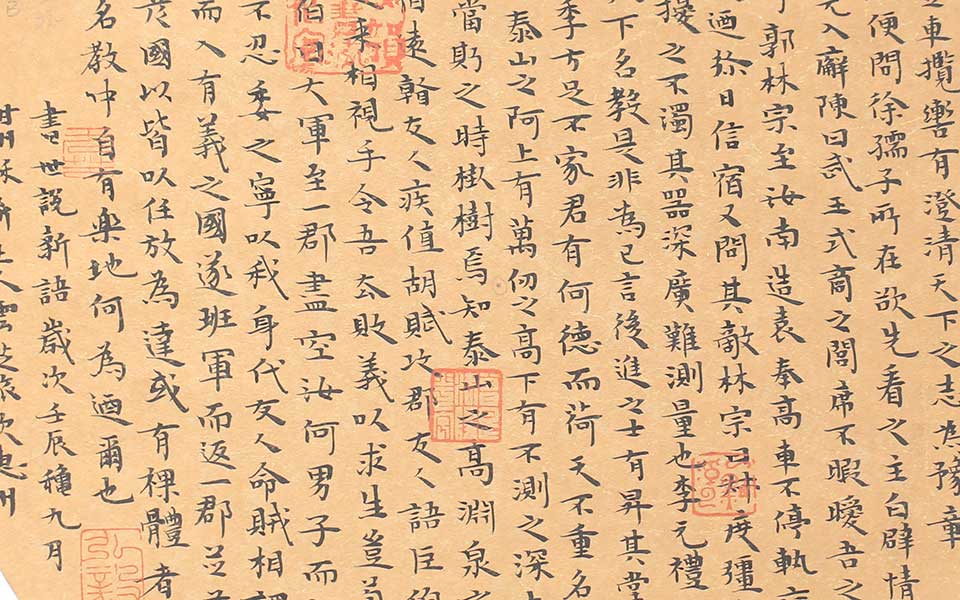 車攬轡有澄清天下之志為豫章
便問徐孺子所在欲先看之主白辟情
入廨陳曰武王式商之閭席不暇曖吾之
郭林宗至汝南造袁奉高車不停軌
迺弥日信宿又問其敵林宗曰度彊
擾之不濁其器深廣難測量也李元禮
下名教是非為已言後進之士有昇其堂
季方足不家君有何德而荷天不重名
泰山之阿上有萬仞之高下有不測之深
當之時樹焉知泰山之高淵泉
伯遠友人疾值胡賊攻郡友人語巨伯
來相視手令吾去敗義以求生豈荀
伯曰大軍至一郡盡空汝何男子而
不忍委之寧以我身代友人命賊相謂
而入有義之國遂班軍而返一郡並
彥國以皆以任放為達或有裸體者
名教中自有樂地何為迺爾也
書世說新語歲次壬辰穐九月